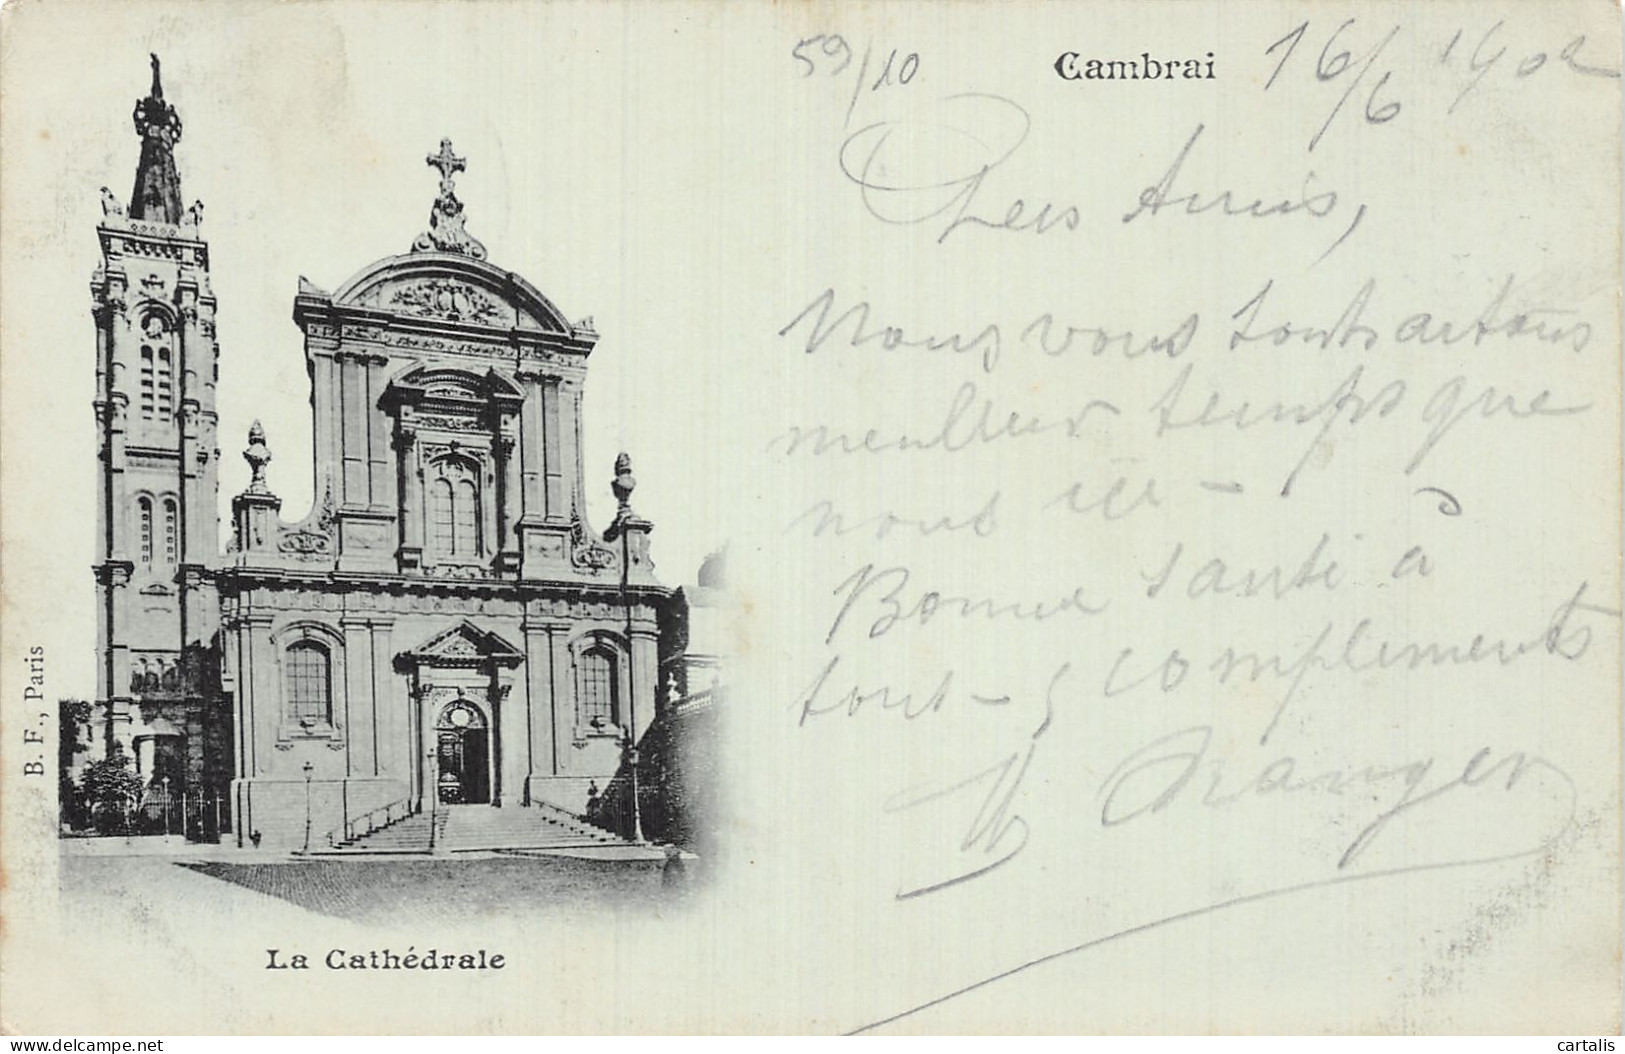 59/10
Cambrai 16/6 1902
Chers Amis,
Nous vous souhaitons
meilleur temps que
nous ici -
Bonne santé à
tous - & compliments
B. F., Paris
La Cathédrale
www.delcampe.net
cartalis